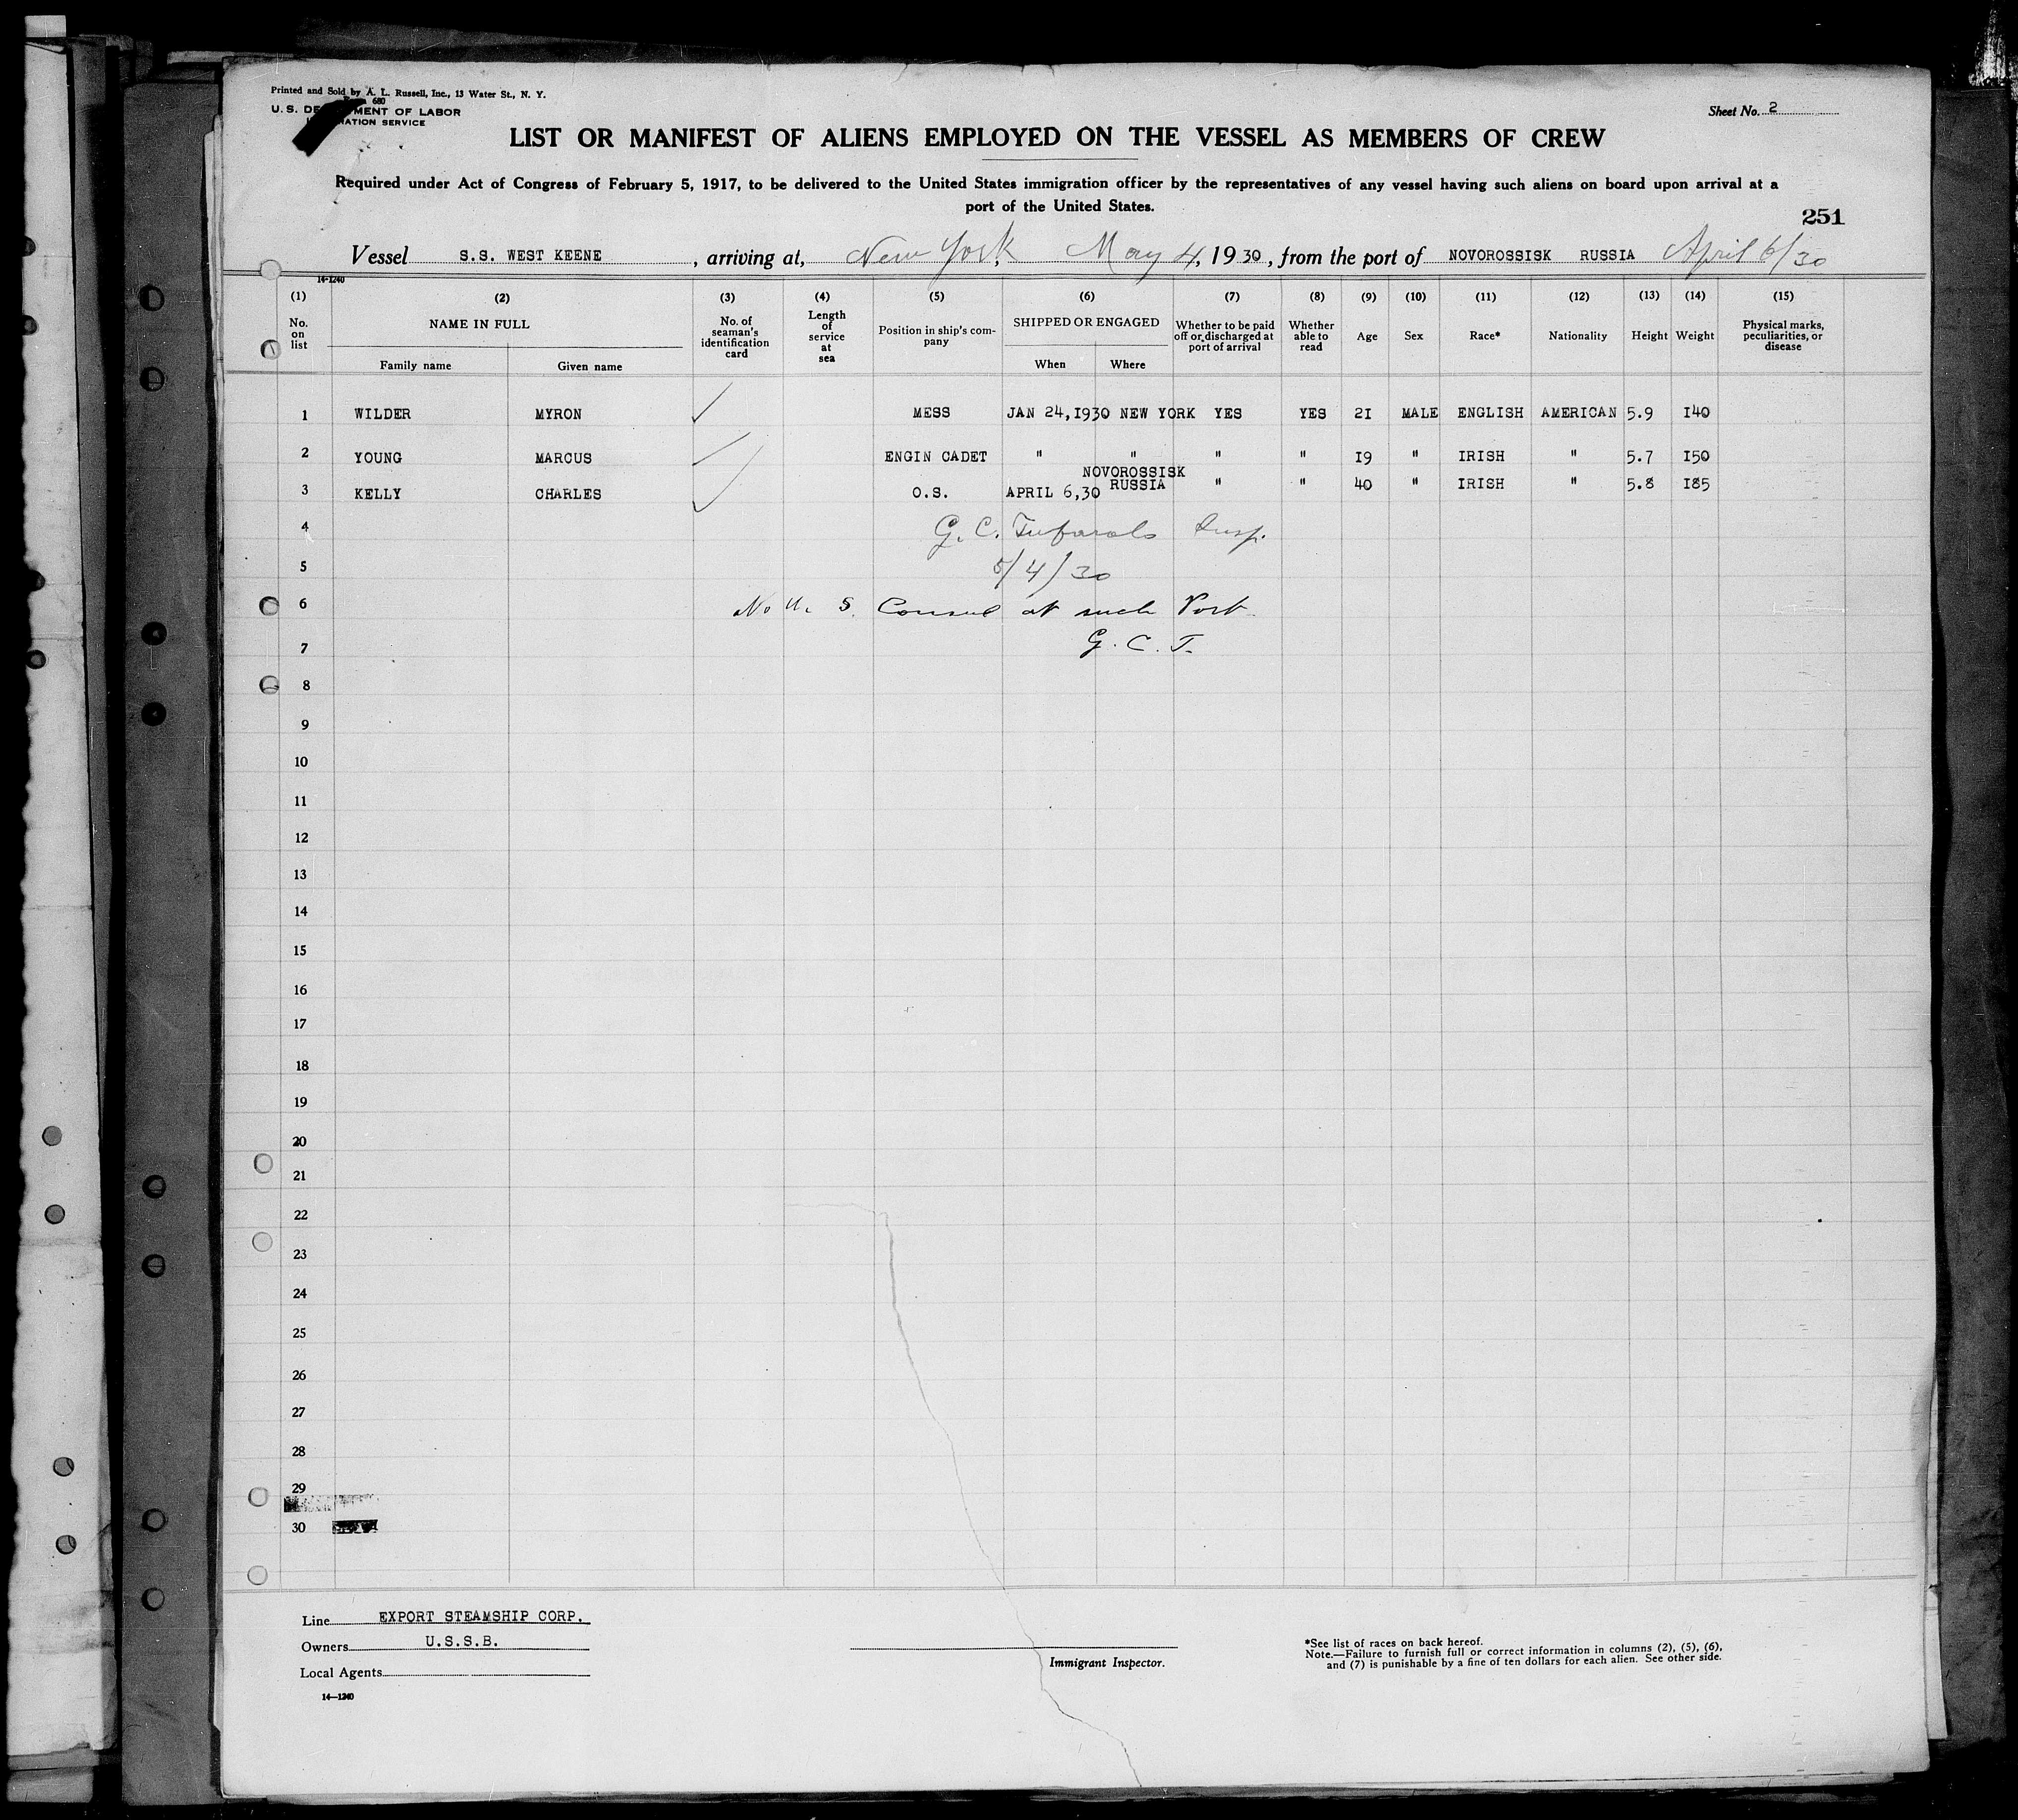 Printed and Sold by A. L. Russell, Inc., 13 Water St., N. Y.
680
U. S. DEPARTMENT OF LABOR
IMMIGRATION SERVICE
Sheet No. 2
LIST OR MANIFEST OF ALIENS EMPLOYED ON THE VESSEL AS MEMBERS OF CREW
Required under Act of Congress of February 5, 1917, to be delivered to the United States immigration officer by the representatives of any vessel having such aliens on board upon arrival at a
port of the United States.
251
Vessel S.S. WEST KEENE, arriving at, New York, May 4, 1930, from the port of NOVOROSSISK RUSSIA April 6/30
14-1240
(1) (2) (3) (4) (5) (6) (7) (8) (9) (10) (11) (12) (13) (14) (15)
No. on list NAME IN FULL Family name Given name No. of seaman's identification card Length of service at sea Position in ship's company SHIPPED OR ENGAGED When Where Whether to be paid off or discharged at port of arrival Whether able to read Age Sex Race* Nationality Height Weight Physical marks, peculiarities, or disease
1 WILDER MYRON MESS JAN 24,1930 NEW YORK YES YES 21 MALE ENGLISH AMERICAN 5.9 140
2 YOUNG MARCUS ENGIN CADET " " " " 19 " IRISH " 5.7 150
3 KELLY CHARLES O.S. APRIL 6,30 NOVOROSSISK RUSSIA " " 40 " IRISH " 5.8 185
4 G. C. Insp.
5 5/4/30
6 No U. S. Consul at such Port
7 G. C. T.
8
9
10
11
12
13
14
15
16
17
18
19
20
21
22
23
24
25
26
27
28
29
30
Line EXPORT STEAMSHIP CORP.
Owners U.S.S.B.
Local Agents
Immigrant Inspector.
*See list of races on back hereof.
Note.—Failure to furnish full or correct information in columns (2), (5), (6),
and (7) is punishable by a fine of ten dollars for each alien. See other side.
14—1240